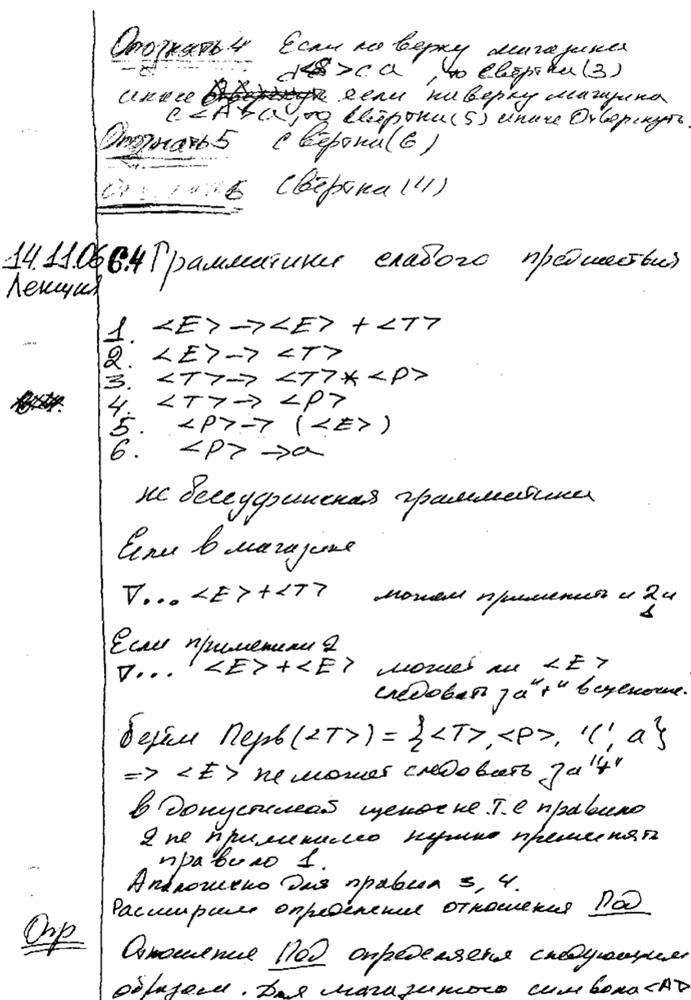 Опознать 4 Если на верху магазина
d<B>ca, то свёртка(3)
иначе если наверху магазина
c<A>a, то свёртка(5) иначе Отвергнуть.
Опознать 5 Свёртка(6)
6 Свёртка(4)
14.11.06 6.4 Грамматики слабого предшествия
Лекция
1. <E> -> <E> + <T>
2. <E> -> <T>
3. <T> -> <T>*<P>
4. <T> -> <P>
5. <P> -> (<E>)
6. <P> -> a
не бессуффиксная грамматика
Если в магазине
∇... <E>+<T> можем применить и 2 и
1
Если применили 2
∇... <E>+<E> может ли <E>
следовать за "+" в цепочке.
берём Перв(<T>) = {<T>, <P>, '(', a}
=> <E> не может следовать за "+"
в допустимой цепочке. Т.е правило
2 не применимо нужно применять
правило 1.
Аналогично для правил 3, 4.
Расширим определение отношения Под
Опр Отношение Под определяется следующим
образом. Для магазинного символа <A>